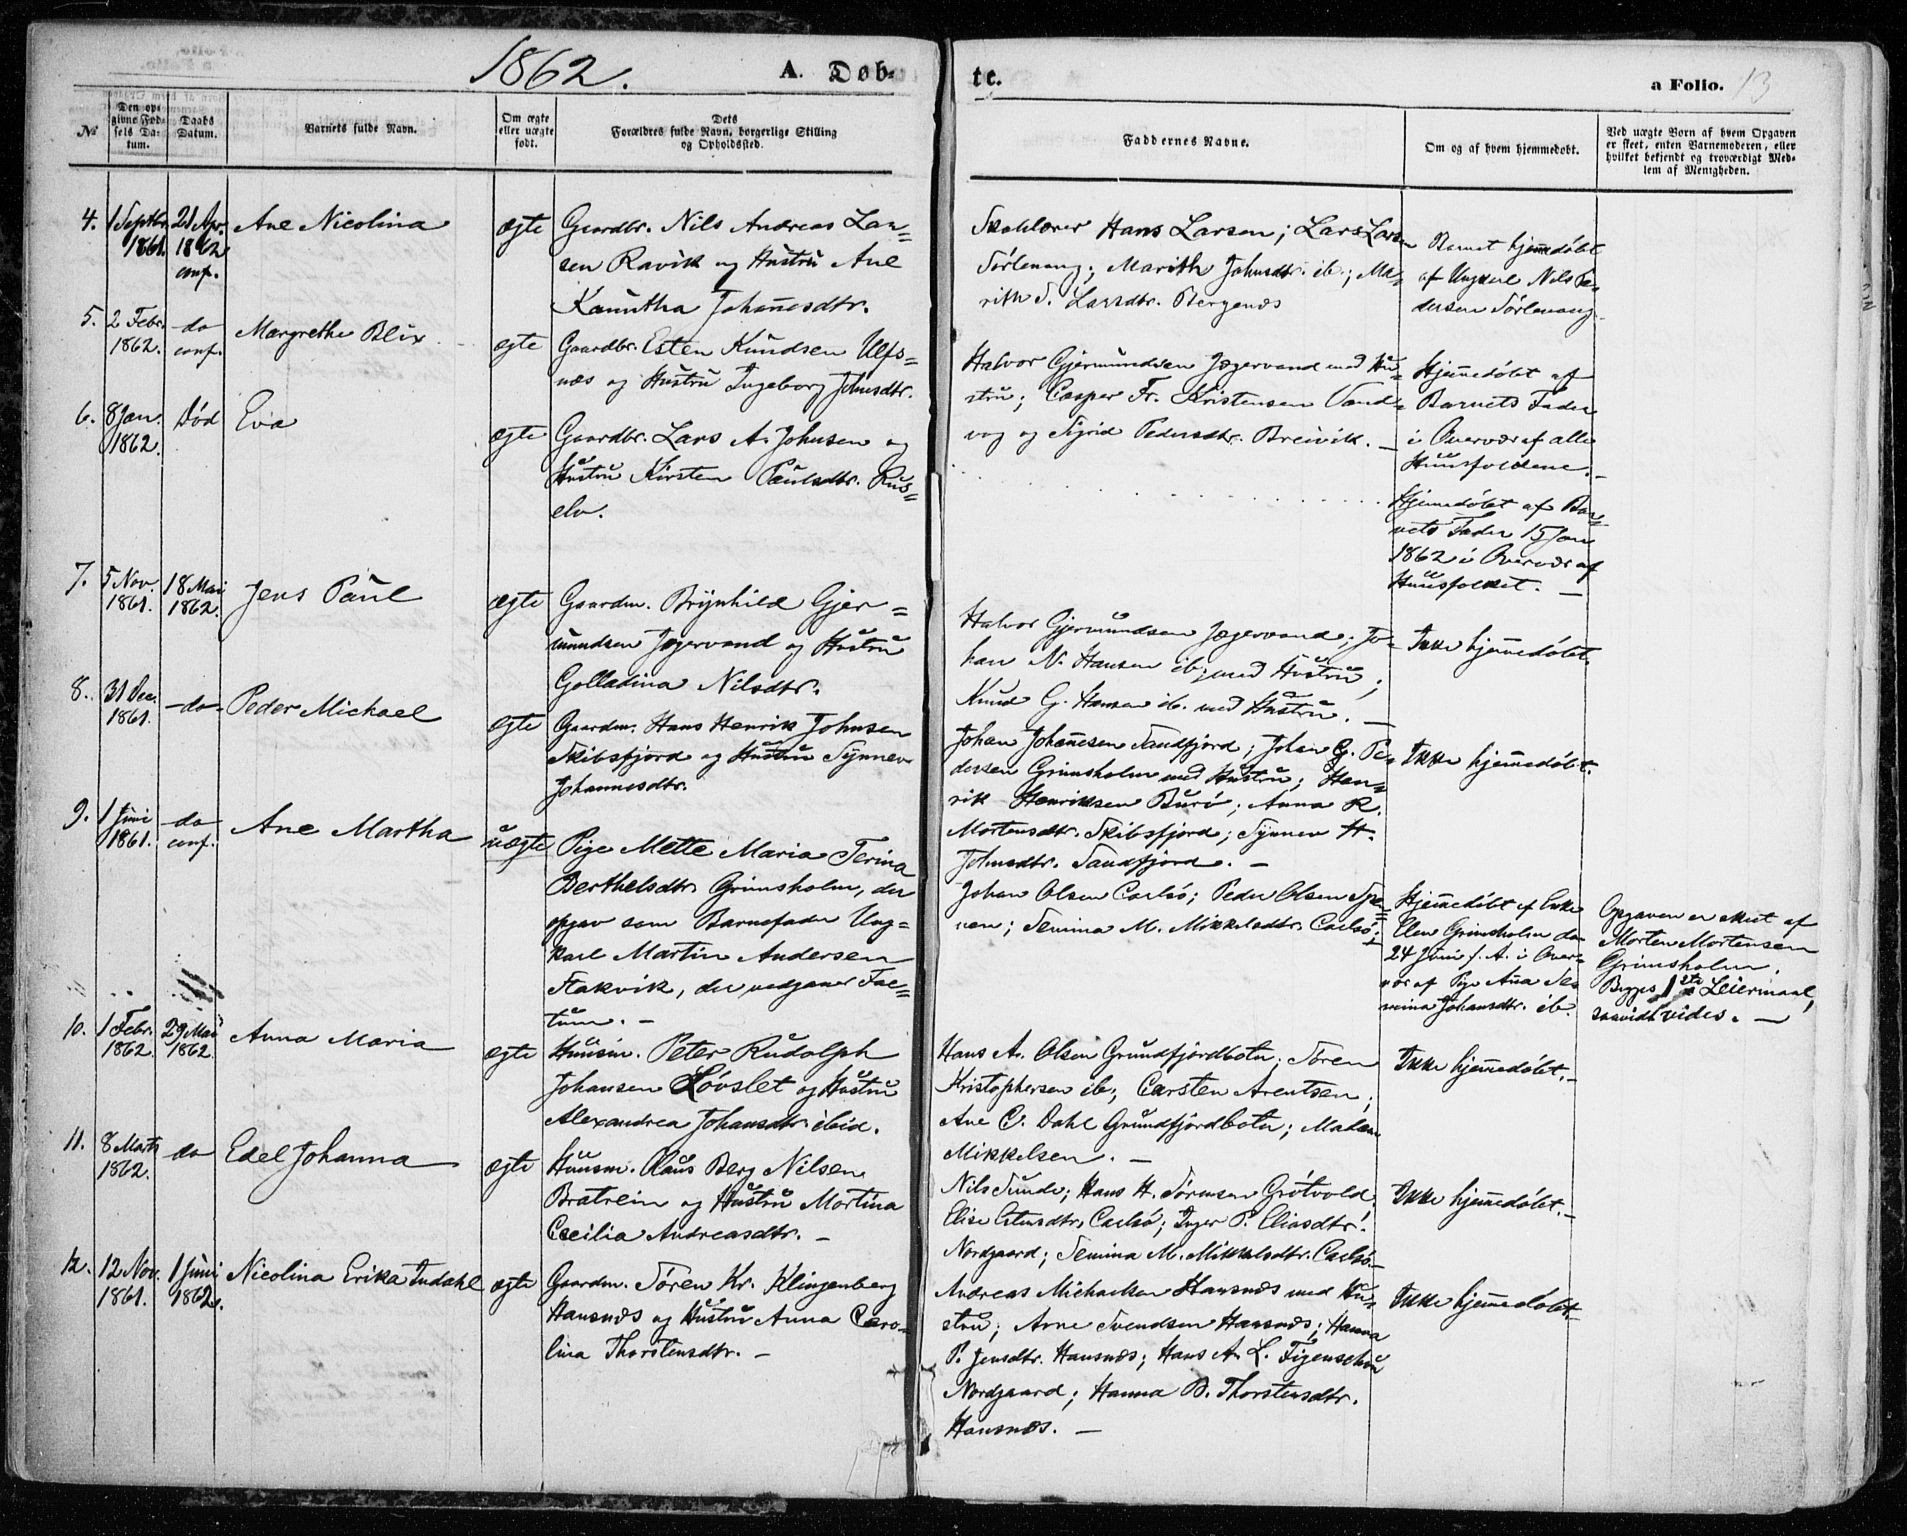 1862.
A. Døb-
te.
a Folio. 13
№
Den op-
givne Fød-
sels Da-
tum.
Daabs
Datum.
Barnets fulde Navn.
Om ægte
eller uægte
født.
Dets
Forældres fulde Navn, borgerlige Stilling
og Opholdssted.
Faddernes Navne.
Om og af hvem hjemmedøbt.
Ved uægte Børn af hvem Opgaven
er skeet, enten Barnemoderen, eller
hvilket bekjendt og troværdigt Med-
lem af Menigheden.
4.
1 Septbr.
1861.
21 Apr.
1862
conf.
Ane Nicolina
ægte
Gaardbr. Nils Andreas Lar=
sen Ravik og Hustru Ane
Johannesdtr.
Skolelærer Hans Larsen; Lars Larsen
Sørlenang; Marith Johnsdtr. ib.; Ma-
rith S. Larsdtr. Bergenæs
Barnet hjemedøbt
af Ungkarl Nils Pe-
dersen Sørlenang
5.
2 Febr.
1862.
do
conf.
Margrethe Blix
egte
Gaardbr. Esten Knudsen Ulfs-
næs og Hustru Ingeborg Johnsdtr.
Halvor Gjermundsen Jægervand med Hu-
stru; Casper Fr. Kristensen Vand-
vag og Sigrid Pedersdtr. Breivik. —
Hjemedøbt af
Barnets Fader
i Overvær af alle
Huusfolkene. —
6.
8 Jan.
1862.
Død
Eva
ægte
Gaardbr. Lars A. Johnsen og
Hustru Kirsten Paulsdtr. Rus=
elv.
Hjemedøbt af Bar=
nets Fader 15 Jan
1862 i Overvær af
Huusfolket. —
7.
5 Nov.
1861.
18 Mai
1862.
Jens Paul
ægte
Gaardm. Brynhild Gjer=
mundsen Jægervand og Hustru
Golladina Nilsdtr.
Halvor Gjermundsen Jægervand; Jo-
han N. Hansen ib. med Hustru;
Knud G. Hansen ib. med Hustru. —
Ikke hjemedøbt.
8.
31 Dec.
1861.
—do—
Peder Michael
egte
Gaardm. Hans Henrik Johnsen
Skibsfjord og Hustru Synnev
Johannesdtr.
Johan Johanesen Sandfjord; Johan G. Pe-
dersen Grimsholm med Hustru; Hen-
rik Henriksen Burø; Anna K.
Mortensdtr. Skibsfjord; Synnev H.
Johnsdtr. Sandfjord. —
Ikke hjemedøbt.
9.
1 Juni
1861.
do
conf.
Ane Martha
uægte
Pige Mette Maria Terina
Berthelsdtr. Grimsholm, der
opgav som Barnefader Ung=
karl Martin Andersen
Flakvik, der vedgaaer Fac=
tum. —
Johan Olsen Carlsø; Peder Olsen
Semina M. Mikkelsdtr. Carlsø. —
Hjemedøbt af Enke
Elen Grimsholm
24 Juni f. A. i Over-
vær af Pige Ana Se-
mina Johansdtr. ib.
Opgaven er skeet af
Morten Mortensen
Grimsholm.
Begges 1ste Leiermaal,
saavidt vides. —
10.
1 Febr.
1862
29 Mai
1862.
Anna Maria
egte
Huusm. Peter Rudolph
Johansen Løvslet og Hustru
Alexandrea Johansdtr. ibid.
Hans A. Olsen Grundfjordbotn; Søren
Kristophersen ib; Carsten Arentsen;
Ane C. Dahl Grundfjordbotn; Madam
Mikkelsen. —
Ikke hjemedøbt. —
11.
8 Marts
1862.
do
Edel Johanna
ægte
Huusm. Claus Berg Nilsen
Bratrein og Hustru Martina
Cecilia Andreasdtr. —
Nils Sunde; Hans H. Sørensen Grøtvold;
Elise Carlsø; Inger P. Eliasdtr.
Nordgaard; Semina M. Mikkelsdtr. Carlsø. —
Ikke hjemedøbt. —
12.
12 Nov.
1861.
1 Juni
1862.
Nicolina Erika Indahl
ægte
Gaardm. Søren Kr. Klingenberg
Hansnæs og Hustru Anna Caro-
lina Thorstensdtr. —
Andreas Michaelsen Hansnæs med Hu-
stru; Arne Svendsen Hansnæs; Hanna
P. Jensdtr. Hansnæs; Hans A. L. Figenschou
Nordgaard; Hanna B. Thorstensdtr.
Hansnæs. —
Ikke hjemedøbt. —